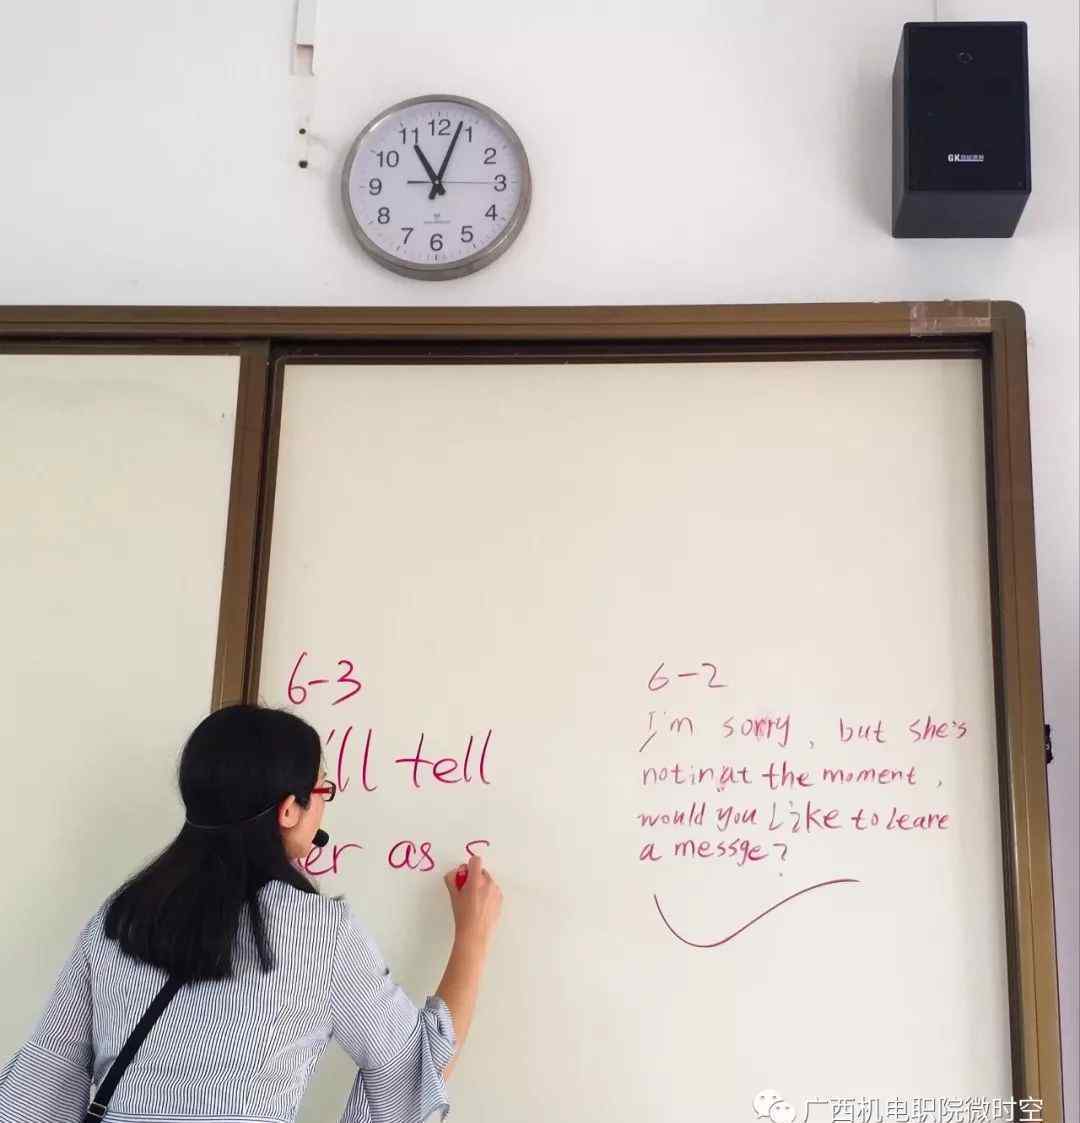 11 12 1
10 2
9 3
8 4
7 6 5
GK
6-3
'll tell
er as s
6-2
I'm sorry, but she's
not in at the moment,
would you like to leare
a messge?
广西机电职院微时空